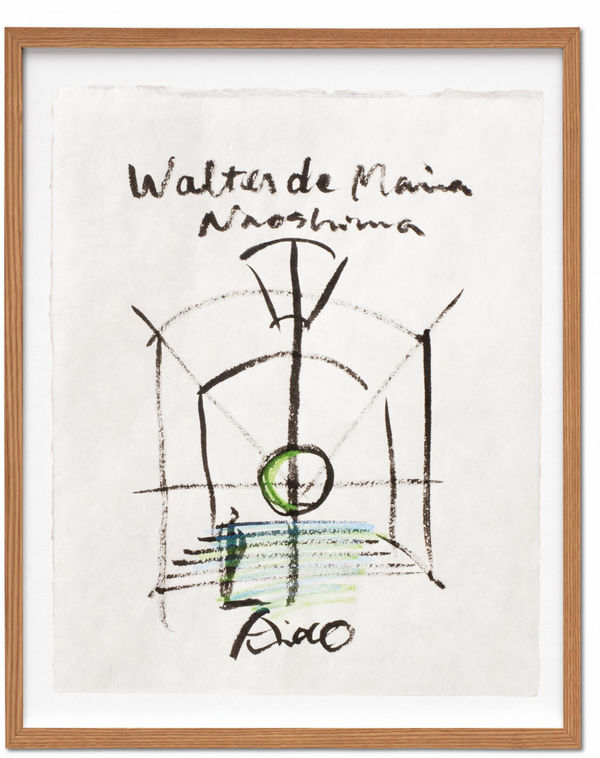 Walter de Maria
Naoshima
Ando